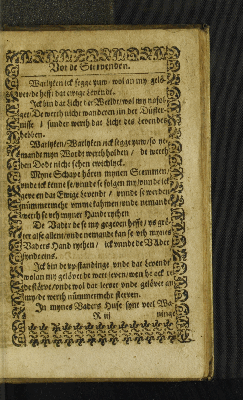 Vor de Stervenden.
Warlyken ick segge yuw / wol an my gelö-
vet / de hefft dat ewige Levendt.
Ick bin dat Licht der Werldt / wol my nafol-
get / De werth nicht wanderen im der Düster-
nisse / sunder werth dat Licht des Levendes
hebben.
Warlyken / Warlyken ick segge yuw / so ye-
mandt myn Wordt werth holden / de werth
den Dodt nicht sehen ewichlyck.
Myne Schape hören mynen Stemmen /
unde ick kenne se / unde se folgen my / unde ick
geve en dat Ewige Levendt / unde se werden
nümmermehr umme kahmen / unde nemandt
werth se uth myner Handt rythen
De Vader de se my gegeven hefft / ys grö-
ter alse alle / unde nemandt kan se uth mynes
Vaders Handt rythen / ick unde de Vader
synde eins.
Ick bin de upstandinge unde dat Levendt
wol an my gelövet de wert leven / wen he ock
störve / unde wol dar levet unde gelövet an
my / de werth nümmermehr sterven.
In mynes Vaders Huse synt veel Wa-
R iij
ninge